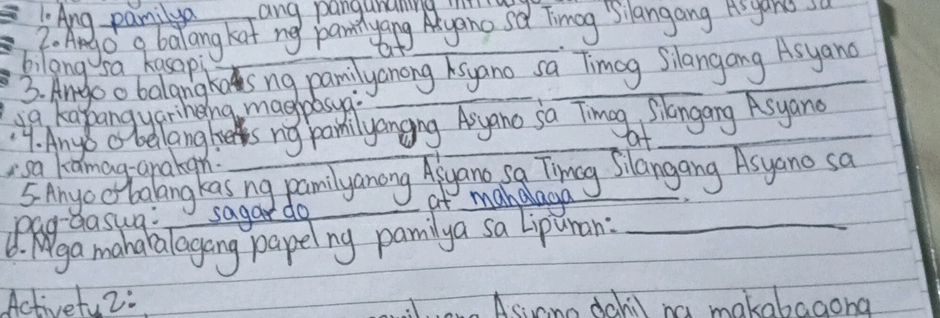 1. Ang pamilya ang pangunahing
2. Anyo o balangkat ng pamilyang Asyano sa Timog Silangang Asyano sa
bilang sa kasapi: at .
3. Anyo o balangkas ng pamilyanong Asyano sa Timog Silangang Asyano
sa kapangyarihang magpasya:
4. Anyo o belangkas ng pamilyanong Asyano sa Timog Silangang Asyano
sa kamag-anakan: at
5. Anyo o balangkas ng pamilyanong Asyano sa Timog Silangang Asyano sa
pag-aaswa: sagardo at mahalaga .
6. Mga mahahalagang papel ng pamilya sa Lipunan:
Activety 2:
Asyano dahil na makabagong